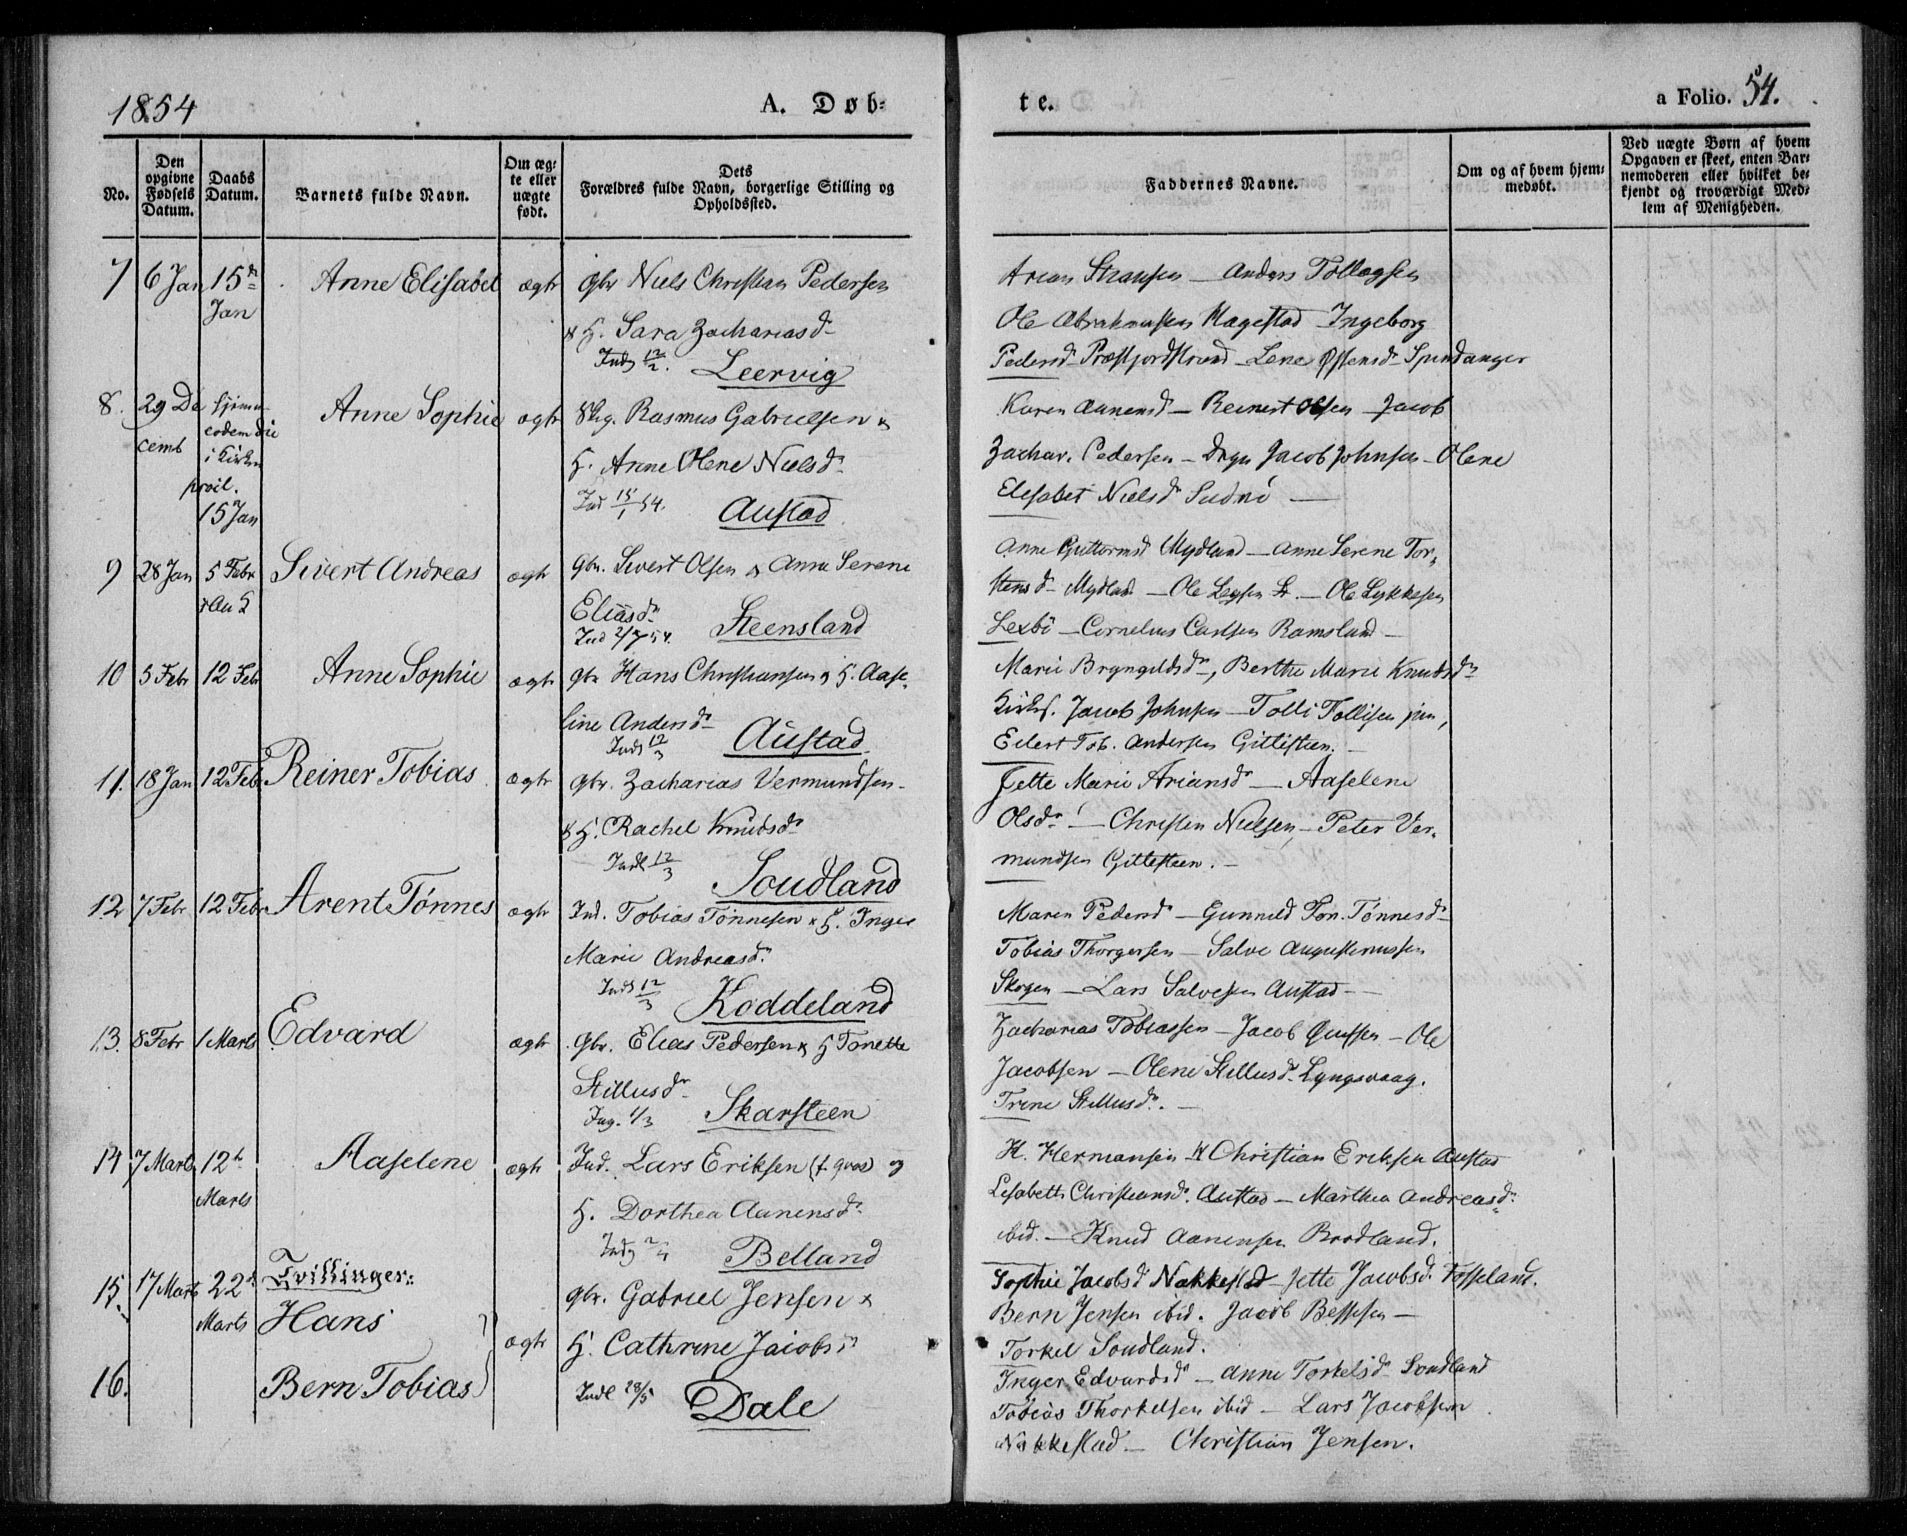 1854
A. Døb-
te.
a Folio. 54.
No.
Den opgivne Fødsels Datum.
Daabs Datum.
Barnets fulde Navn.
Om ægte eller uægte født.
Dets Forældres fulde Navn, borgerlige Stilling og Opholdssted.
Faddernes Navne.
Om og af hvem hjemmedøbt.
Ved uægte Børn af hvem Opgaven er skeet, enten Barnemoderen eller hvilket bekjendt og troværdigt Medlem af Menigheden.
7 6 Jan 15de Jan Anne Elisabet ægte gbr Niels Christian Pedersen
& H. Sara Zachariasdr
Inds 12/2. Leervig
Arian Strausen — Anders Tollagsen
Ole Abrahamsen Hagestad Ingeborg
Pedersd Præstjordstrand — Lene Østensdr Spindanger
8. 29 Decemb hjemm eodem die i Kirken 15 Jan Anne Sophie ægte Rasmus Gabrielsen &
H. Anne Olene Nielsdr
Ind 15/1 54. Austad
Karen Aanensd — Reinert Olsen — Jacob
Zachar. Pedersen — Jacob Johnsen — Olene
Elisabet Nielsdr
9 28 Jan 5 Febr Sivert Andreas ægte gbr. Sivert Olsen & Anne Serene
Eliasdr
Ind 2/7 54. Steensland
Anne Guttormsd Mydland — Anne Serene Tor-
stensd — Mydland — Ole — Ole Lykkesen
— Cornelius Carlsen Ramsland —
10 5 Febr 12 Feb Anne Sophie ægte gbr Hans Christiansen & H. Aase-
line Andersdr
Inds 12/3 Austad
Marie Bryngeldsdr, Berthe Marie Knudsdr
Kirkes. Jacob Johnsen — Tolli Tollisen jun,
Eilert Tob. Andersen Gittlesteen. —
11. 18 Jan 12 Feb Reiner Tobias ægte gbr. Zacharias Vermundsen
& H. Rachel Knudsdr
Indl 12/3 Soudland
Jette Marie Ariansdr — Aaselene
Olsdr — Christen Nielsen — Peter Ver-
mundsen Gittlesteen. —
12 7 Febr 12 Febr Arent Tønnes ægte Ind. Tobias Tønnesen & H. Inger
Marie Andreasdr
Inds 12/3 Koddeland
Maren Pedersd — Gunnild Ton. Tønnesdr
Tobias Thorgersen — Salve Augustinussen
Skogen — Lars Salvesen Austad —
13. 8 Febr 1 Marts Edvard ægte gbr. Elias Pedersen & H Tonette
Stillusdr
Ing. 1/3 Skarsteen
Zacharias Tobiassen — Jacob — Ole
Jacobsen — Olene Stillusdr Lyngsvaag.
Trine Stillusdr. —
14 7 Marts 12te Marts Aaselene ægte Ind. Lars Eriksen og
H. Dorthea Aanensdr
Inds 2/4 Belland
H. Hermansen Christian Eriksen Austad
Lisabeth Christiansdr Austad — Marthea Andreasdr
ibid. — Knud Aanensen Brodland.
15. 17 Marts 22de Marts Tvillinger: Hans ægte gbr. Gabriel Jensen &
H. Cathrine Jacobsdr
16. Bern Tobias
Indl 28/5 Dale
Sophie Jacobsd Nakkestad — Jette Jacobsdr Fosseland.
Bern Jensen ibid. Jacob Bessesen —
Torkel Soudland.
Inger Edvardsdr — Anne Torkelsdr Soudland
Tobias Thorkelsen ibid — Lars Jacobsen
Nakkestad — Christian Jensen.